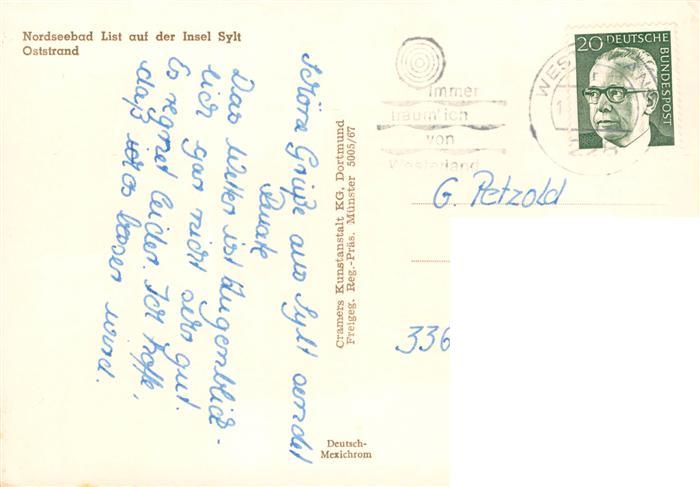 Nordseebad List auf der Insel Sylt
Oststrand
Schöne Grüße aus Sylt sendet
Das Wetter ist Augenblick-
lich gar nicht sehr gut.
Es regnet leider. Ich hoffe,
daß es besser wird.
Cramers Kunstanstalt KG, Dortmund
Freigeg. Reg.-Präs. Münster 5005/67
Deutsch-
Mexichrom
immer
traum'ich
von
Westerland
20 DEUTSCHE
BUNDESPOST
G. Petzold
336